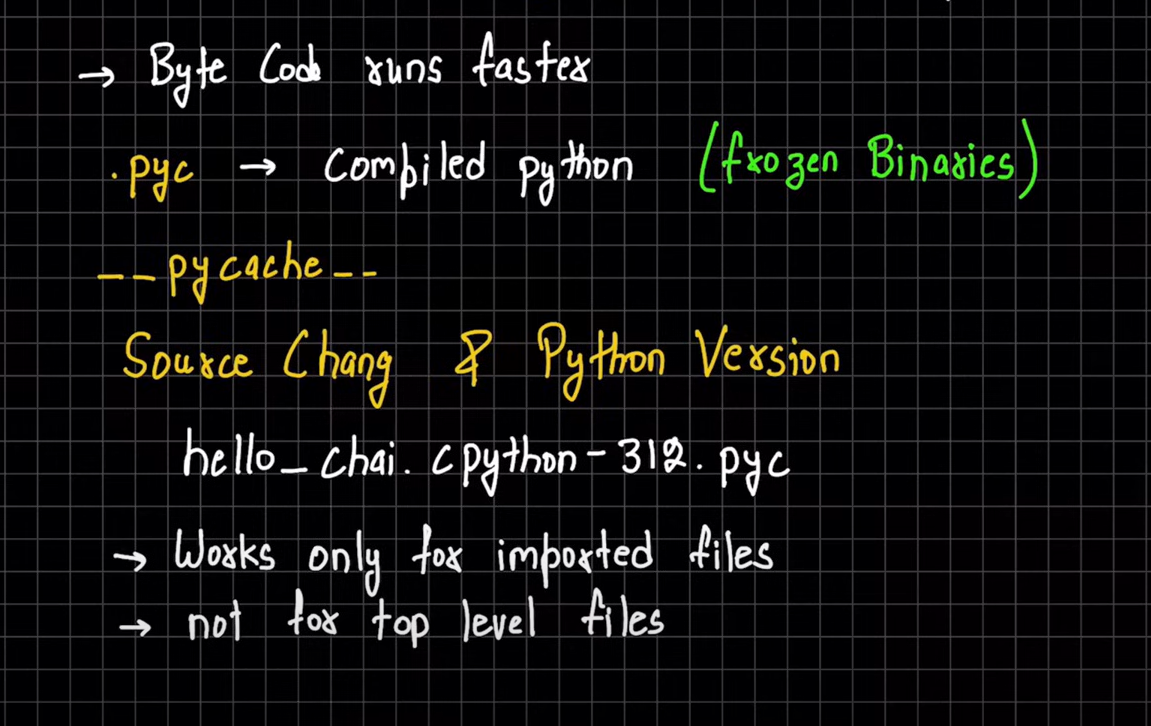 → Byte Code runs faster
.pyc → Compiled python (frozen Binaries)
--pycache--
Source Chang & Python Version
hello_chai.cpython-312.pyc
→ Works only for imported files
→ not for top level files